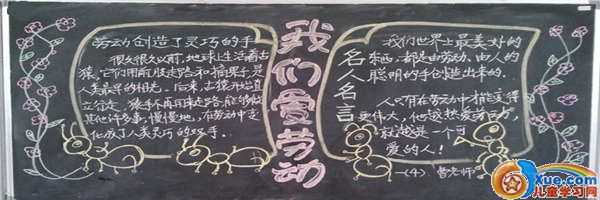 劳动创造了灵巧的手
很久很久以前,地球上生活着古
猿。它们用前肢走路和摘果子,是
人类最早的祖先。后来,古猿开始直
立行走,猿手不再用来走路,能够做
其他许多事,慢慢地,在劳动中变
化成了人类灵巧的双手。
我们爱劳动
名人名言
我们世界上最美好的
东西,都是由劳动、由人的
聪明的手创造出来的。
人只有在劳动中才能变得
更伟大,他越热爱劳动,
就越是一个可
爱的人!
一(4) 曹老师
Xue.com
儿童学习网